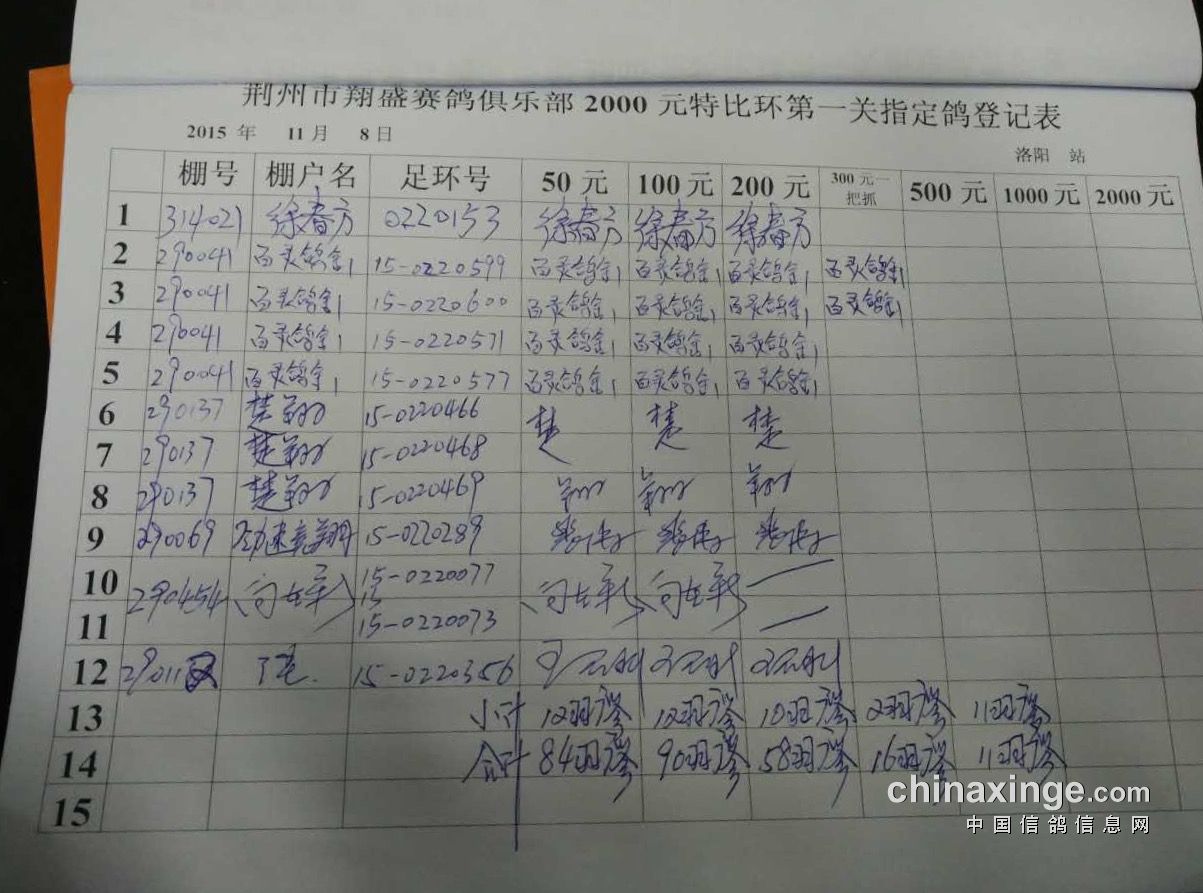 荆州市翔盛赛鸽俱乐部 2000 元特比环第一关指定鸽登记表
2015 年 11 月 8 日
洛阳 站
棚号 棚户名 足环号 50 元 100 元 200 元 300 元一把抓 500 元 1000 元 2000 元
1 314021 徐春方 0220153 徐春方 徐春方 徐春方
2 290041 百灵鸽舍 15-0220599 百灵鸽舍 百灵鸽舍 百灵鸽舍 百灵鸽舍
3 290041 百灵鸽舍 15-0220600 百灵鸽舍 百灵鸽舍 百灵鸽舍 百灵鸽舍
4 290041 百灵鸽舍 15-0220571 百灵鸽舍 百灵鸽舍 百灵鸽舍
5 290041 百灵鸽舍 15-0220577 百灵鸽舍 百灵鸽舍 百灵鸽舍
6 290137 楚翔 15-0220466 楚 楚 楚
7 290137 楚翔 15-0220468
8 290137 楚翔 15-0220469 翔 翔 翔
9 290069 15-0220289
10 290454 15-0220077
15
11 15-0220073
12 29011 15-0220356
13 小计 12羽 12羽 10羽 2羽 11羽
14 合计 84羽 90羽 58羽 16羽 11羽
15
chinaxinge.com
中国信鸽信息网